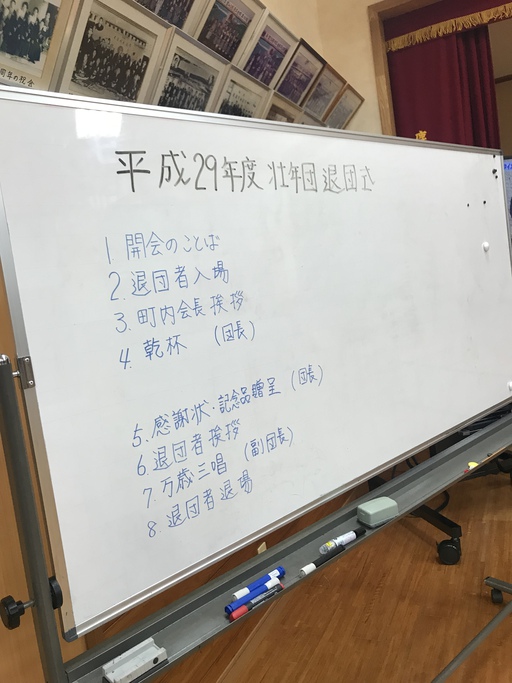 平成29年度 壮年団 退団式
1. 開会のことば
2. 退団者入場
3. 町内会長 挨拶
4. 乾杯 (団長)
5. 感謝状・記念品贈呈 (団長)
6. 退団者挨拶
7. 万歳三唱 (副団長)
8. 退団者 退場